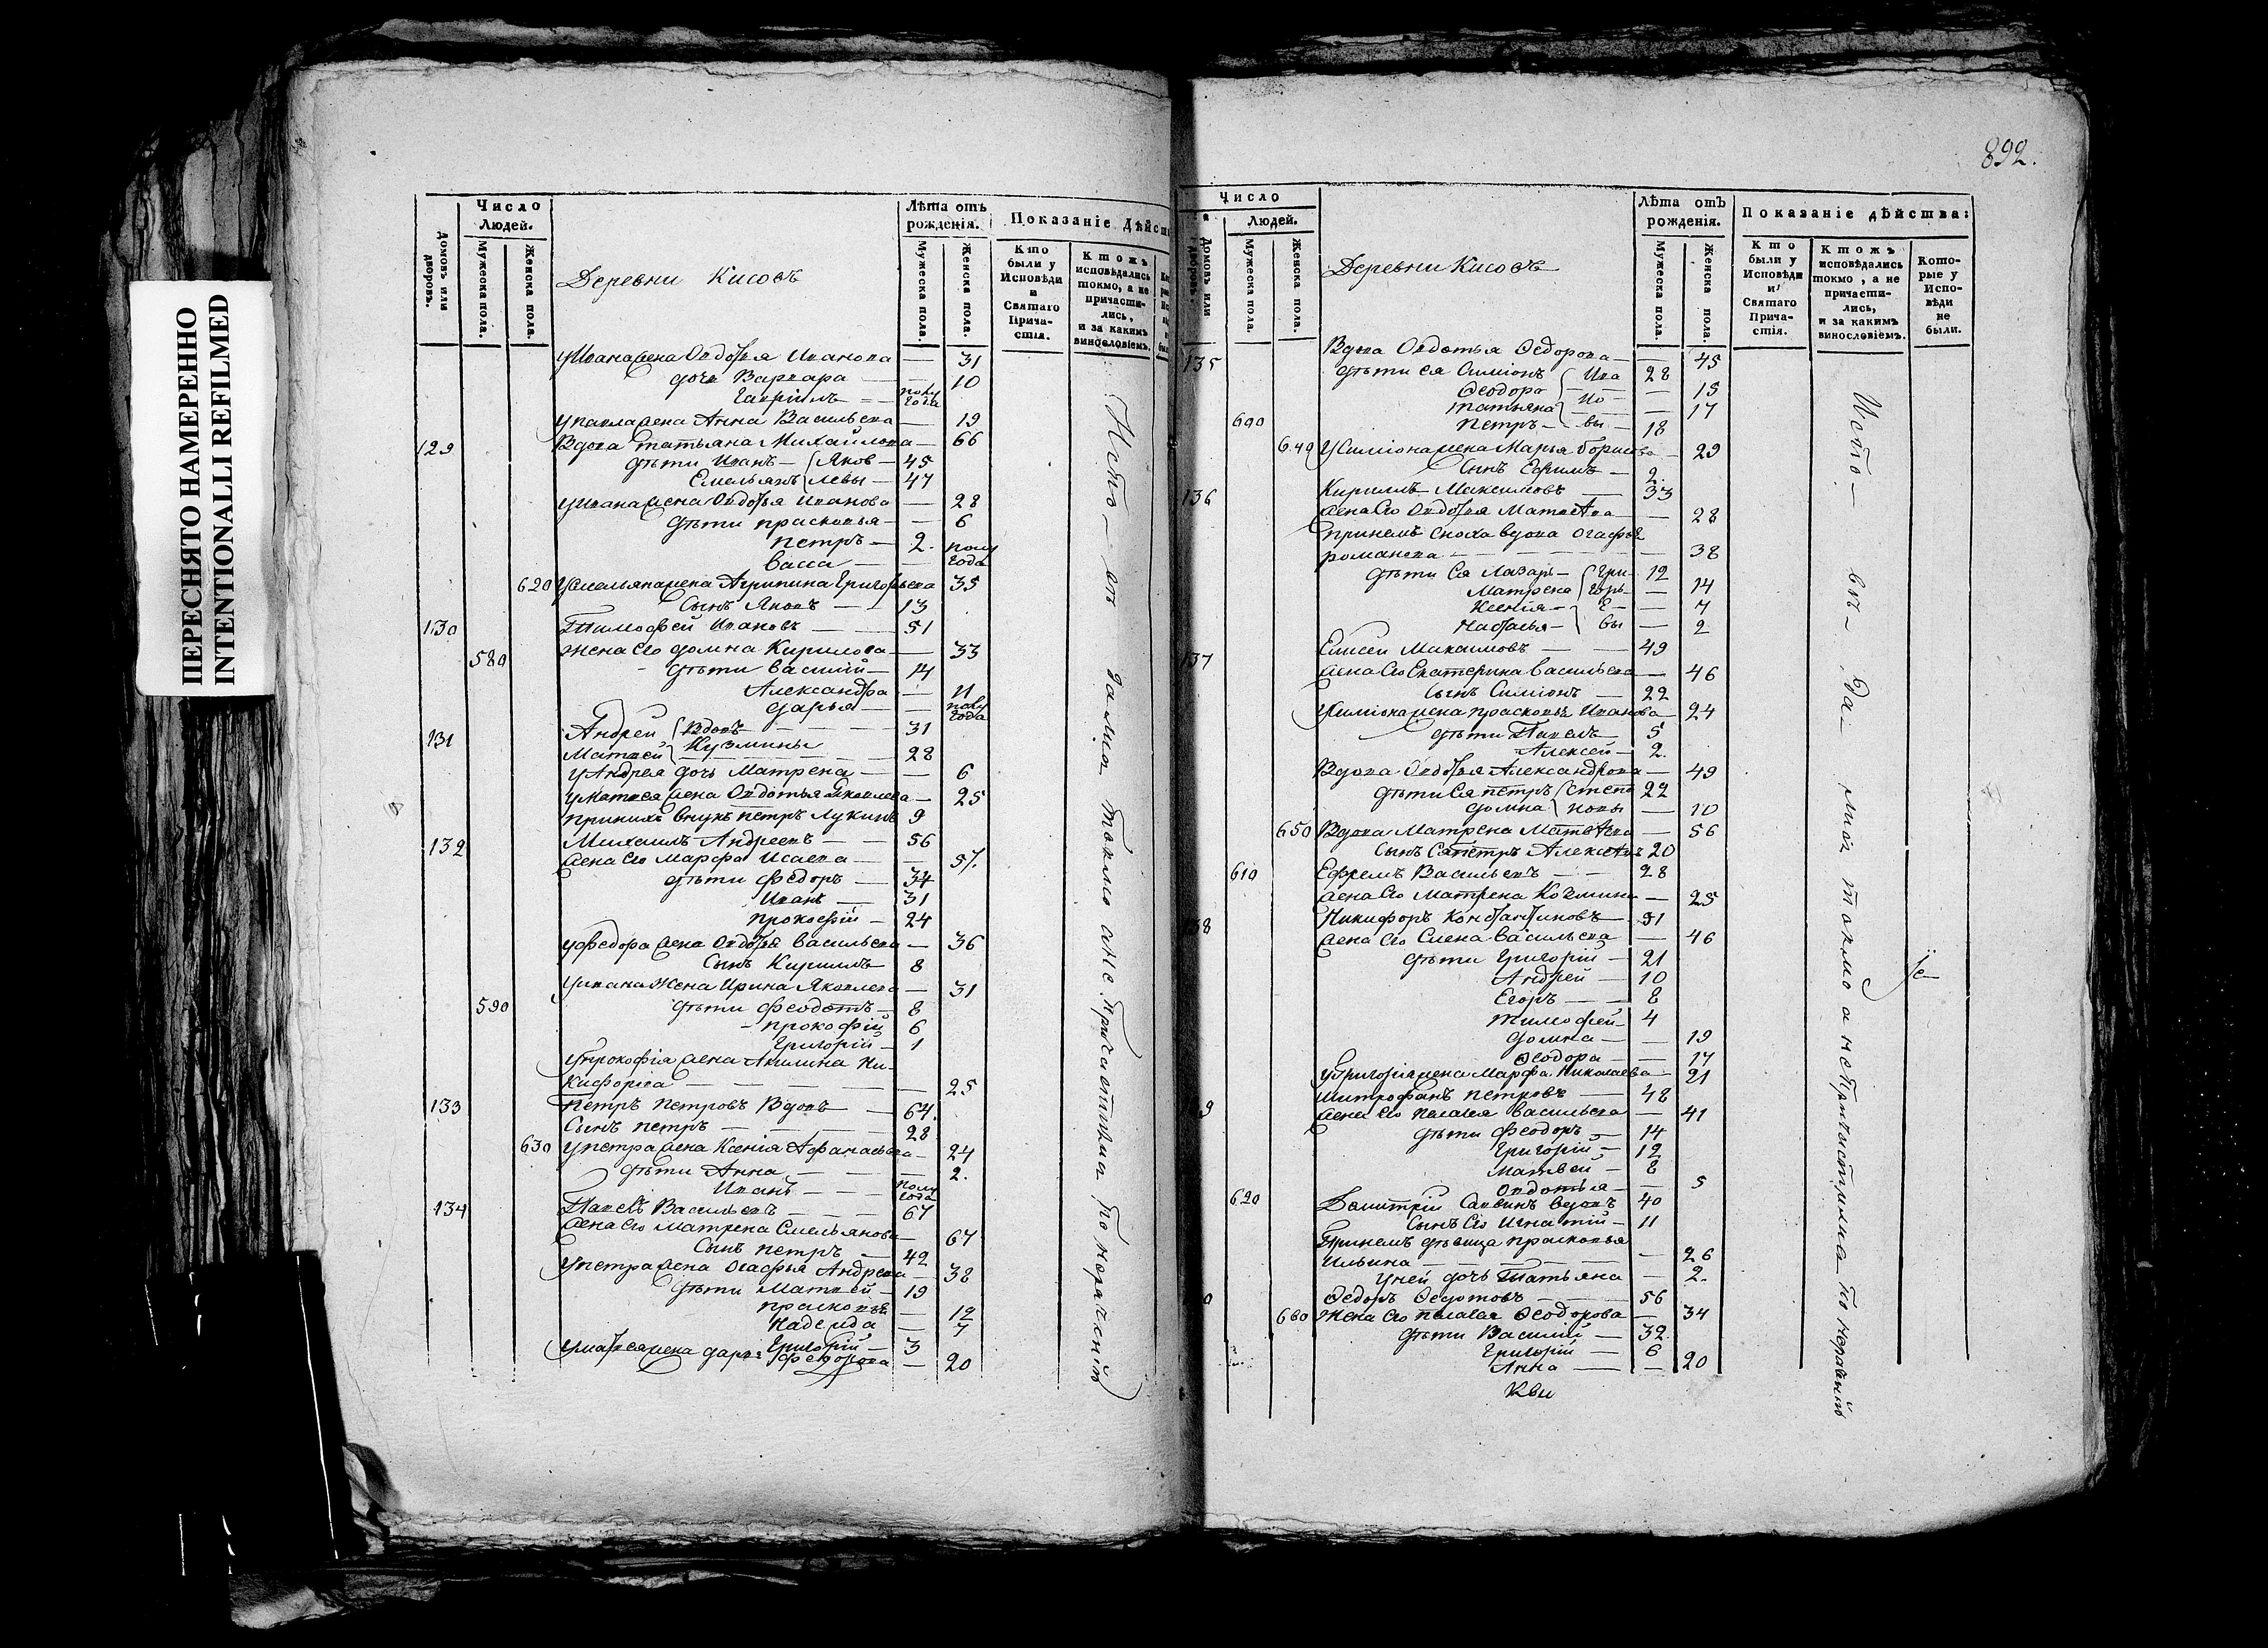 ПЕРЕСНЯТО НАМЕРЕННО
INTENTIONALLI REFILMED
Число
Людей.
Домовъ или дворовъ.
Мужеска пола.
Женска пола.
Деревни Кисовъ
Лѣта отъ рожденія.
Мужеска пола.
Женска пола.
Показаніе Дѣйст
Кто были у Исповѣди и Святаго Прича-стія.
Ктожъ исповѣдались токмо, а не причасти-лись, и за какимъ винословіемъ.
У Ивана жена Овдотья Иванова — 31
дочь Варвара — 10
Гавріилъ — полугода
У Павла жена Анна Васильева — 19
129 Вдова татьяна Михайлова — 66
дѣти Иванъ — Яков — 45
Емельянъ левы — 47
У Ивана жена Овдотья Иванова — 28
дѣти прасковья — 6
петръ — 2.
васса — полугода
620 У Емельяна жена Агрипина Григорьева 35
Сынъ Яковъ — 13
130 Тимофей Ивановъ — 51
580 Жена Его домна Кирилова — 33
дѣти василій — 14
Александра — 11
дарья — полугода
131 Андрей Вдовъ — 31
Матвей Кузмины — 28
У Андрея дочь Матрена — 6
У матвея жена Овдотья Яковлева — 25
при нихъ внукъ петръ Лукинъ 9
132 Михаилъ Андреевъ — 56
жена Его Марфа Исаева — 57.
дѣти федоръ — 34
Иванъ — 31
прокофій — 24
У федора жена Овдотья васильева — 36
Сынъ Кирилъ 8
У ивана Жена Ирина Яковлева — 31
590 дѣти феодотъ — 8
прокофій 6
Григорій — 1
У прокофія жена Акилина Ни-
кифорова — 25
133 Петръ Петровъ Вдовъ — 64.
Сынъ петръ — 28
630 У петра жена Ксенія Афанасьева — 24
дѣти Анна — 2.
Иванъ — полугода
134 Павелъ Васильевъ — 67
жена Его матрена Емельянова — 67
Сынъ петръ — 42
У петра жена Огафья Андреева — 38
дѣти Матвей — 19
прасковья — 12
Надежда — 7
Григорій — 3
У матвея жена дарья федорова — 20
892.
Число
Людей.
Домовъ или дворовъ.
Мужеска пола.
Женска пола.
Деревни Кисовъ
Лѣта отъ рожденія.
Мужеска пола.
Женска пола.
Показаніе дѣйства:
Кто были у Исповѣди и Святаго Прича-стія.
Ктожъ исповѣдались токмо, а не причасти-лись, и за какимъ винословіемъ.
Кото-рые у Испо-вѣди не были.
135 Вдова Овдотья Ѳедорова — 45
дѣти ея Симіонъ Ива 28
Ѳеодора — но — 15
татьяна — 17
600 Петръ — вы — 18
640 У Симіона жена Марья борисова — 29
Сынъ Ефимъ — 2.
136 Кирилъ Максимовъ — 33
жена Его Овдотья Матвеева — 28
при немъ сноха вдова огафья
романова — 38
дѣти Ея Лазарь — Гри 12
Матрена Горь — 14
Ксенія — Е — 7
Наталья — вы — 2
137 Елисей Макаимовъ — 49
жена Его Екатерина васильева — 46
Сынъ Симіонъ — 22
У Симіона жена прасковья Иванова — 24
дѣти Павелъ 5
Алексей — 2.
Вдова Овдотья Александрова — 49
дѣти Ея петръ степа 22
домна новы — 10
650 Вдова Матрена Матвеева — 56
Сынъ Ея петръ Алексеевъ 20
610 Ефремъ Васильевъ — 28
жена Его Матрена Козмина — 25
138 Никифоръ Константиновъ — 51
жена Его Елена васильева — 46
дѣти Григорій — 21
Андрей — 10
Егоръ — 8
тимофей — 4
домна — 19
Ѳеодора — 17
У Григорія жена Марфа Николаева — 21
9 Митрофанъ петровъ — 48
жена Его Пелагея васильева — 41
дѣти феодоръ — 14
Григорій — 12
матвей — 8
овдотья — 5
620 Дмитрій Саввинъ вдовъ 40
Сынъ Его Игнатій — 11
При немъ дѣвица прасковья
Ильина — 26
у ней дочь Татьяна — 2.
0 Ѳедоръ Ѳедотовъ — 56
660 Жена Его пелагея Ѳеодорова — 34
дѣти Василій — 32
Григорій — 6
Анна — 20